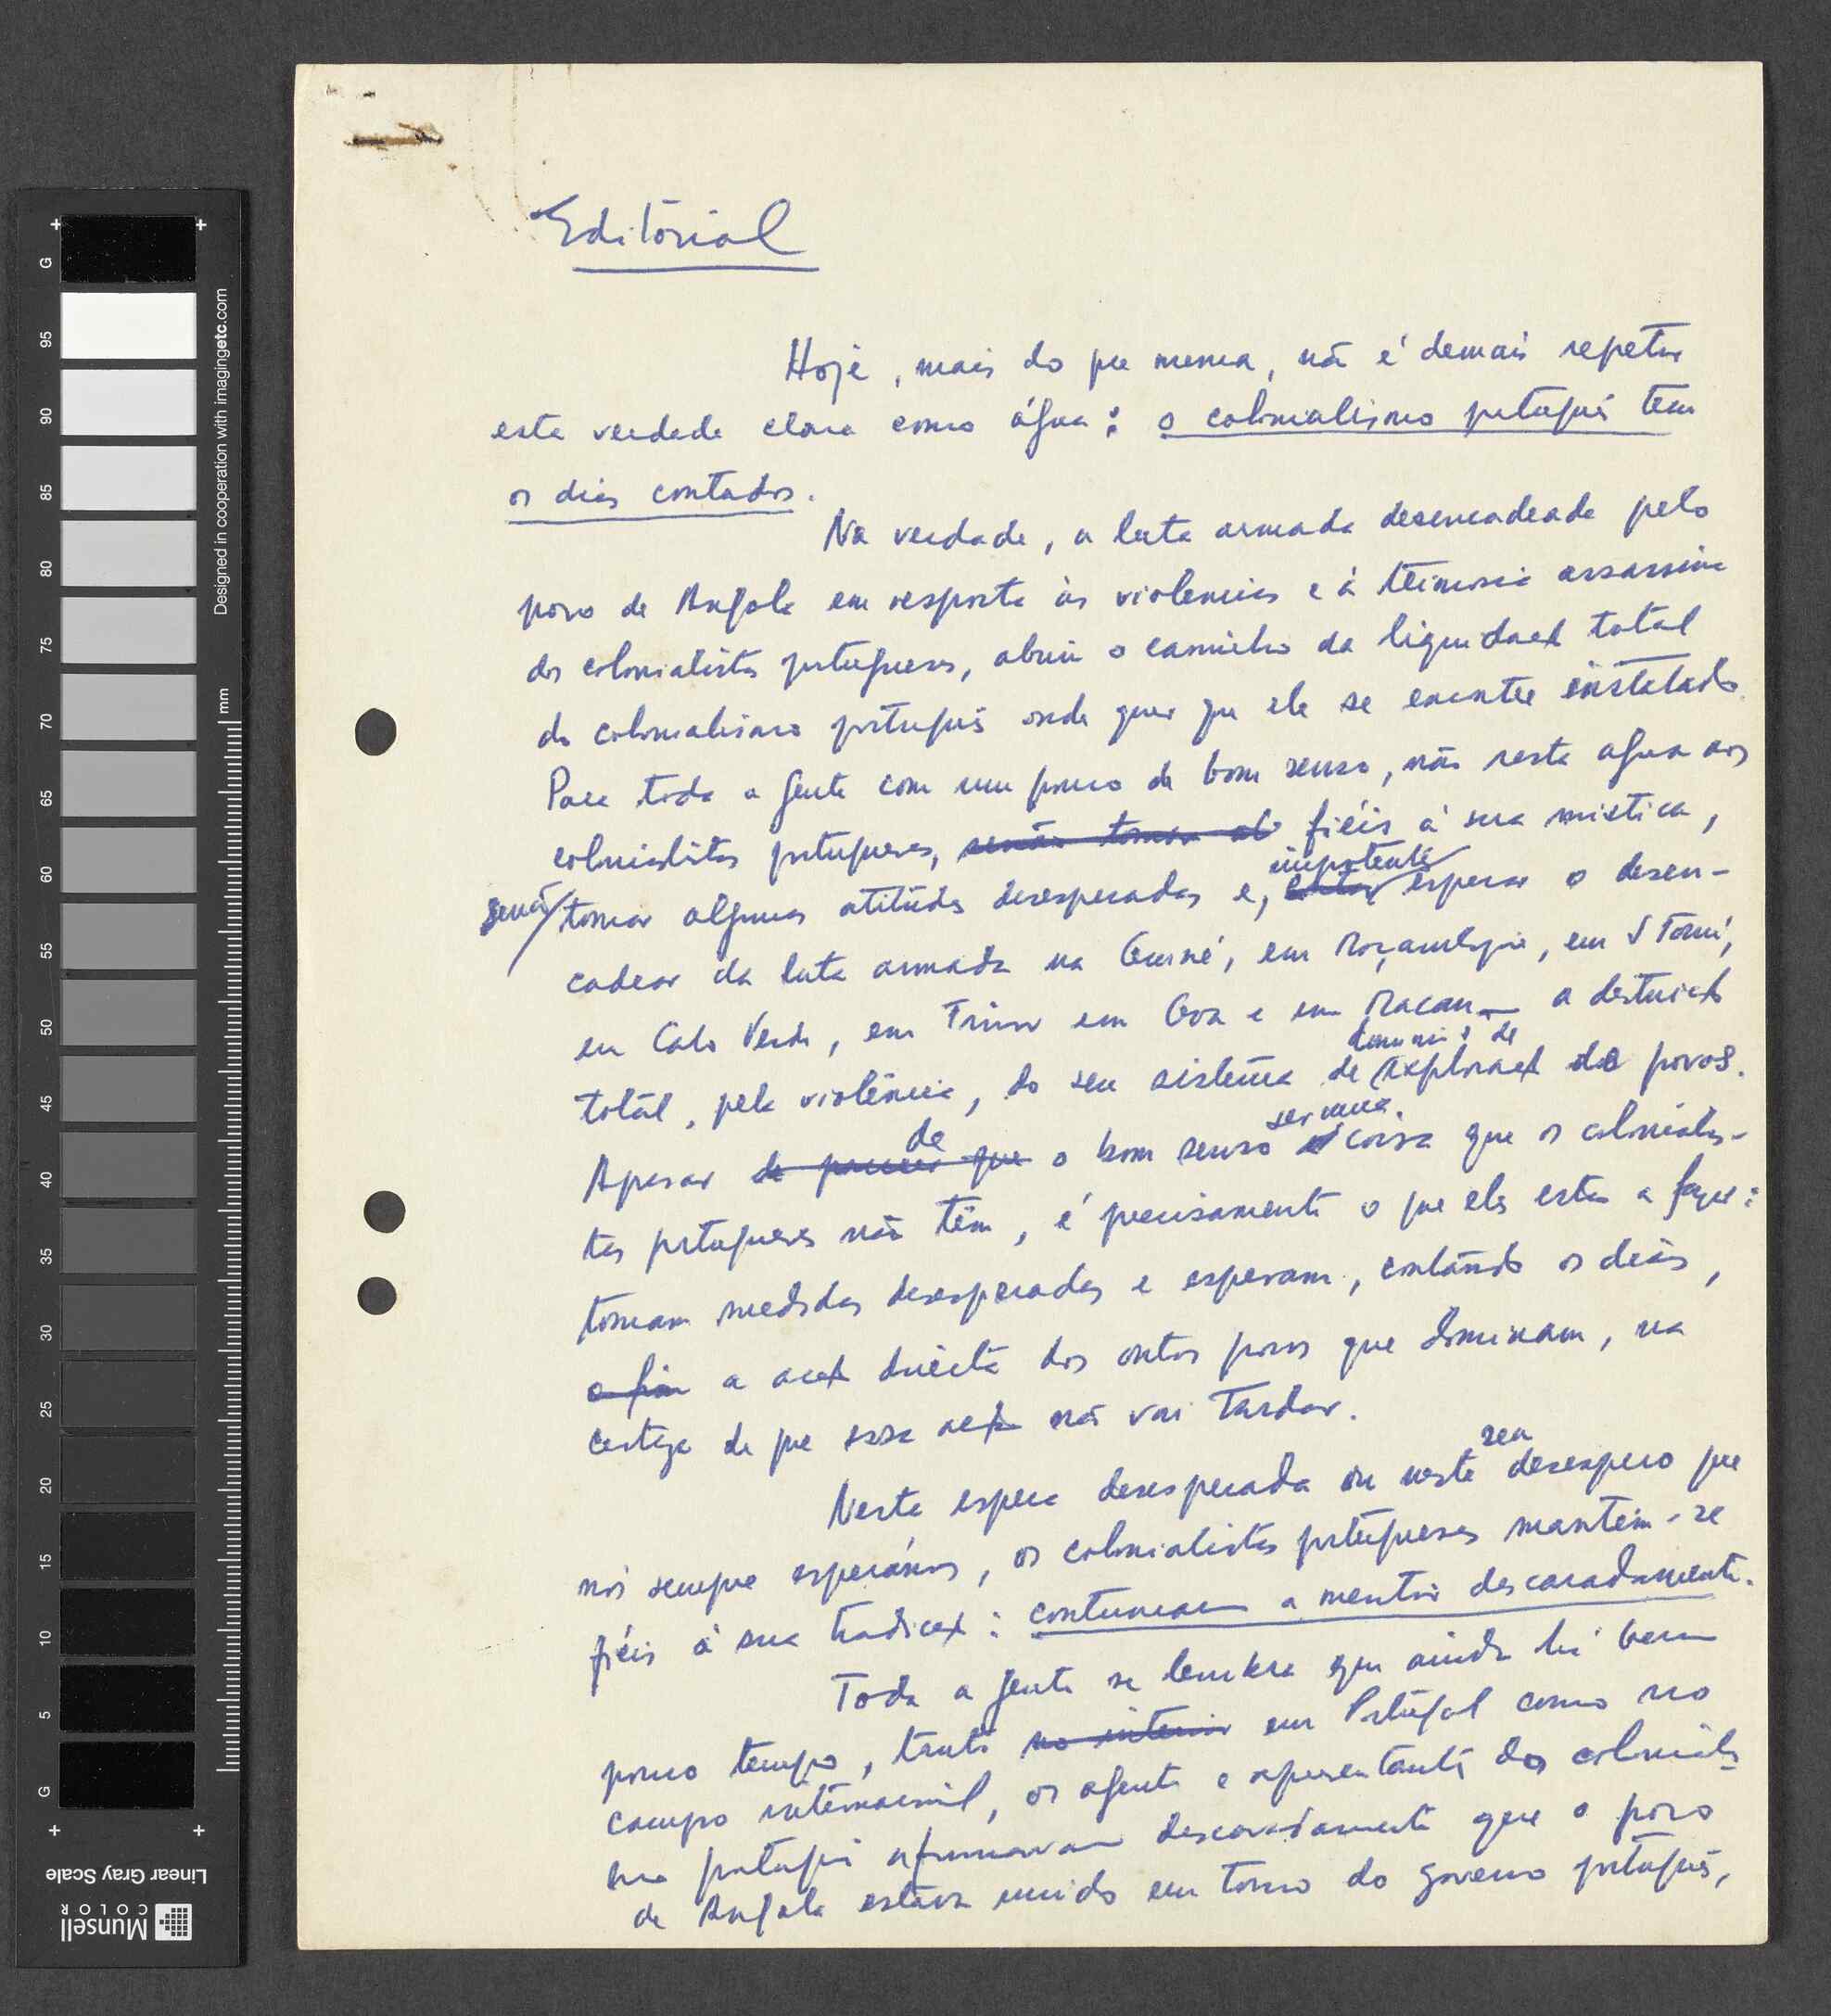 Editorial
Hoje, mais do que nunca, não é demais repetir
esta verdade clara como água: o colonialismo português tem
os dias contados.
Na verdade, a luta armada desencadeada pelo
povo de Angola em resposta às violencias e à teimosia assassina
dos colonialistas portugueses, abriu o caminho da liquidação total
do colonialismo português onde quer que ele se encontre instalado.
Para toda a gente com um pouco de bom senso, não resta agora aos
colonialistas portugueses, senão tomar at fiéis à sua mistica,
senão tomar algumas atitudes desesperadas e, impotentes esperar o desen-
cadear da luta armada na Guiné, em Moçambique, em S Tomé,
em Cabo Verde, em Timor em Goa e em Macau — a destruição
total, pela violência, do seu sistema de domínio e de exploração de povos.
Apesar de parecer que de o bom senso ser uma coisa que os colonialis-
tas portugueses não têm, é precisamente o que eles estão a fazer:
tomam medidas desesperadas e esperam, contando os dias,
o fim a acção directa dos outros povos que dominam, na
certeza de que essa acção não vai tardar.
Nesta espera desesperada ou neste seu desespero que
nós sempre esperámos, os colonialistas portugueses mantém-se
fiéis à sua tradição: continuam a mentir descaradamente.
Toda a gente se lembra que ainda há bem
pouco tempo, tanto no interior em Portugal como no
campo internacional, os agentes e representantes do colonialis-
mo português afirmavam descaradamente que o povo
de Angola estava unido em torno do governo português,
G 95 90 85 80 75 70 65 60 55 50 45 40 35 30 25 20 15 10 5 G
Designed in cooperation with imagingetc.com
mm
Linear Gray Scale
Munsell
COLOR